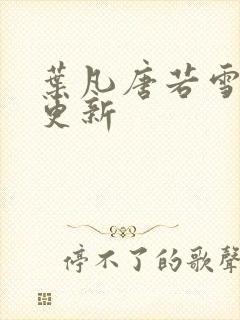 葉凡唐若雪
更新
停不了的歌聲